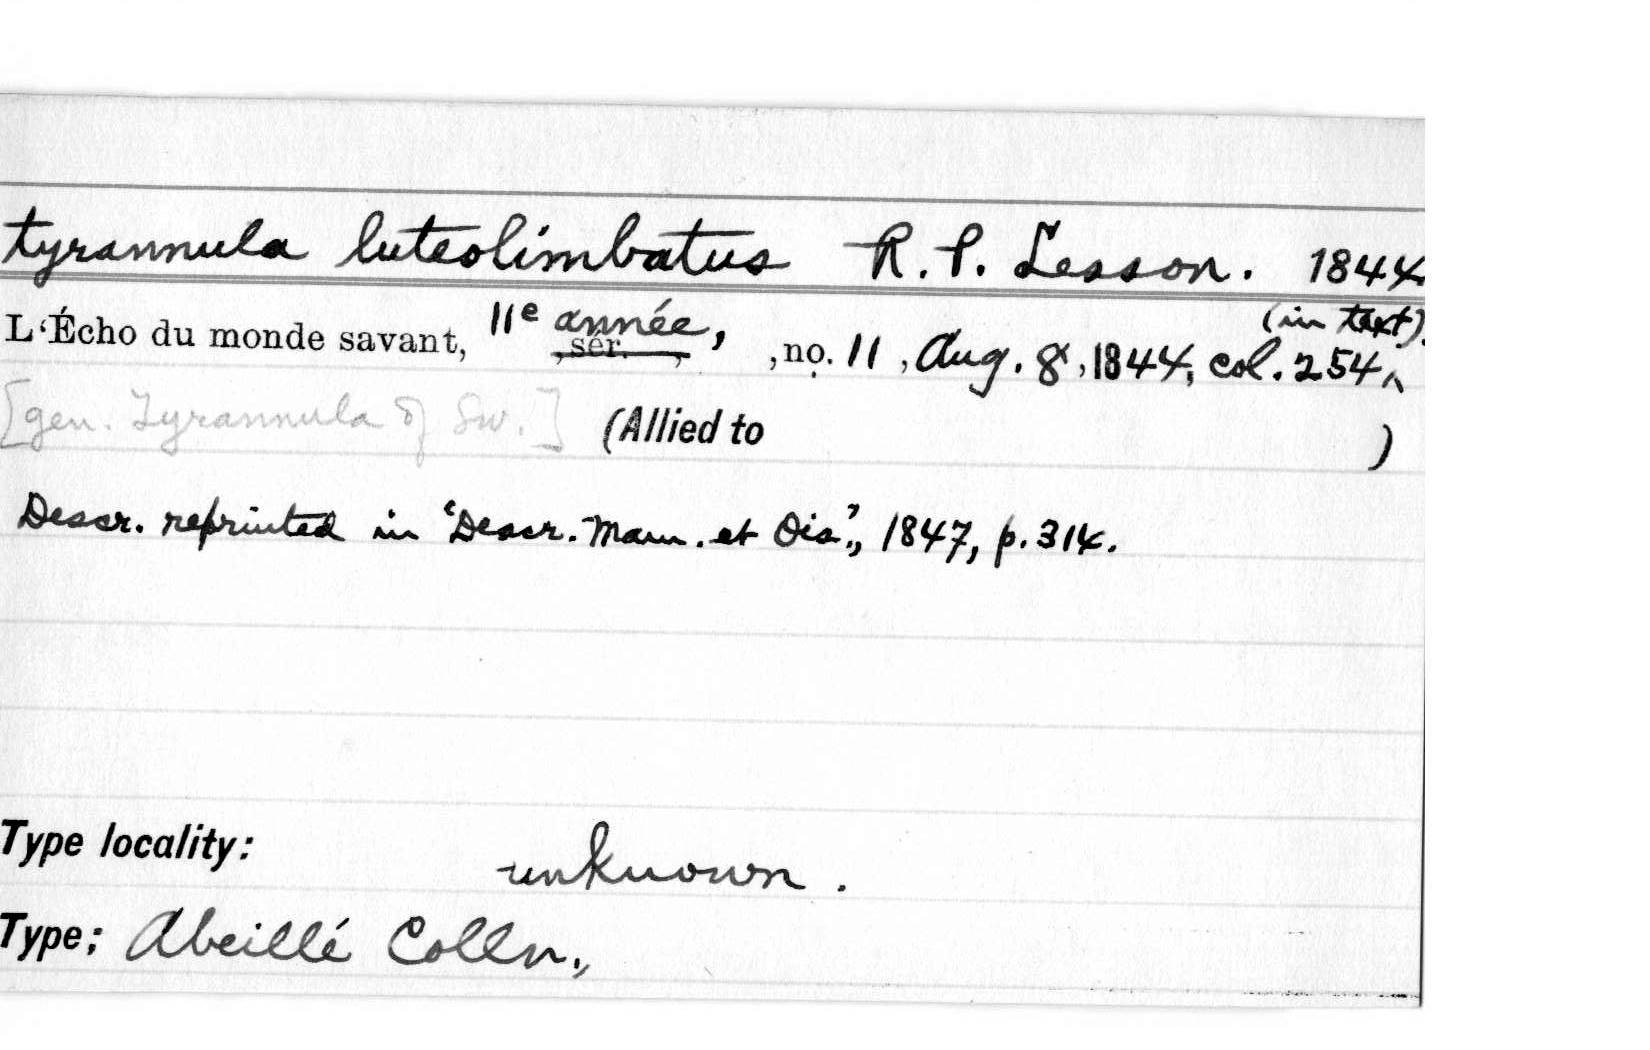 tyrannula luteolimbatus R. P. Lesson. 1844
L'Écho du monde savant, 11e année, , sér. , , no. 11 , Aug. 8 , 1844, col. 254 (in text).
[gen. Tyrannula of Sw.] (Allied to )
Descr. reprinted in "Descr. Mam. et Ois.", 1847, p. 314.
Type locality: unknown .
Type; Abeillé Colln.,